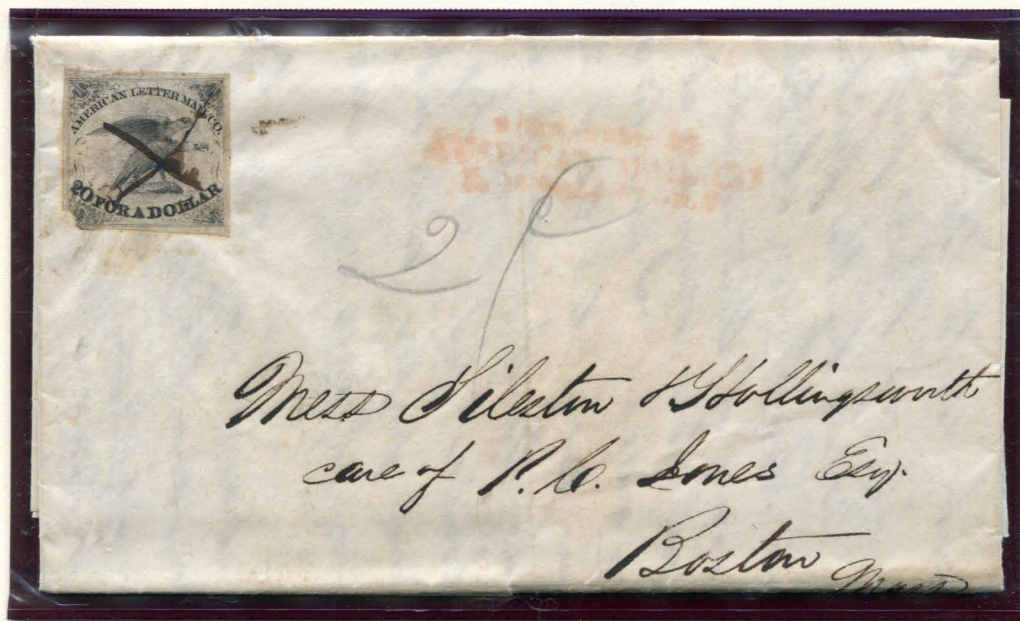 AMERICAN LETTER MAIL CO.
20 FOR A DOLLAR
2
Mess Tileston & Hollingsworth
care of P. C. Jones Esq.
Boston
Mass